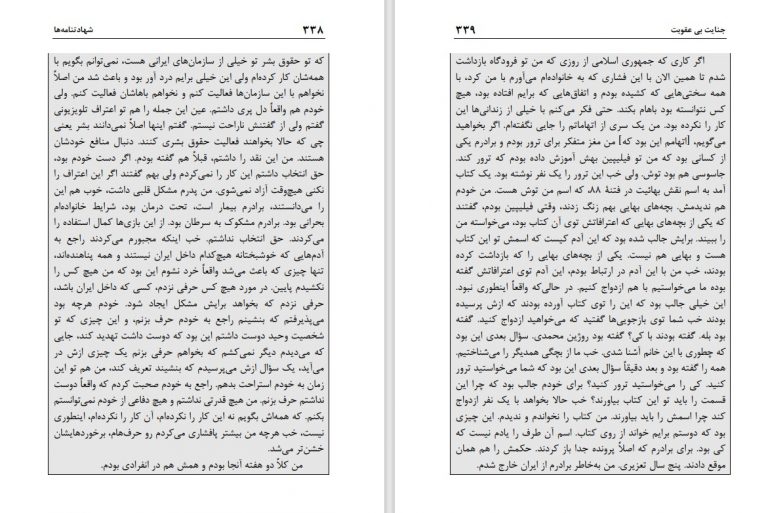 ۳۳۸ شهادتنامه‌ها
که تو حقوق بشر تو خیلی از سازمان‌های ایرانی هست، نمی‌توانم بگویم با
همه‌شان کار کرده‌ام ولی این خیلی برایم درد آور بود و باعث شد من اصلاً
نخواهم با این سازمان‌ها فعالیت کنم و نخواهم باهاشان فعالیت کنم. ولی
خودم هم واقعاً دل پری داشتم. عین این جمله را هم تو اعتراف تلویزیونی
گفتم ولی از گفتنش ناراحت نیستم. گفتم اینها اصلاً نمی‌دانند بشر یعنی
چی که حالا بخواهند فعالیت حقوق بشری کنند. دنبال منافع خودشان
هستند. من این نقد را داشتم، قبلاً هم گفته بودم. اگر دست خودم بود،
حق انتخاب داشتم این کار را نمی‌کردم ولی بهم گفتند اگر این اعتراف را
نکنی هیچ‌وقت آزاد نمی‌شوی. من پدرم مشکل قلبی داشت، خوب هم این
را می‌دانستند، برادرم بیمار است، تحت درمان بود، شرایط خانواده‌ام
بحرانی بود. برادرم مشکوک به سرطان بود. از این بازی‌ها کمال استفاده را
می‌کردند. حق انتخاب نداشتم. خب اینکه مجبورم می‌کردند راجع به
آدم‌هایی که خوشبختانه هیچ‌کدام داخل ایران نیستند و همه پناهنده‌اند،
تنها چیزی که باعث می‌شد واقعاً خرد نشوم این بود که من هیچ کس را
نکشیدم پایین. در مورد هیچ کس حرفی نزدم، کسی که داخل ایران باشد،
حرفی نزدم که بخواهد برایش مشکل ایجاد شود. خودم هرچه بود
می‌پذیرفتم که بنشینم راجع به خودم حرف بزنم، و این چیزی که تو
شخصیت وحید دوست داشتم این بود که دوست داشت تهدید کند، جایی
که می‌دیدم دیگر نمی‌کشم که بخواهم حرفی بزنم یک چیزی ازش در
می‌آید، یک سؤال ازش می‌پرسیدم که بنشیند تعریف کند، من هم تو این
زمان به خودم استراحت بدهم. راجع به خودم صحبت کردم که واقعاً دوست
نداشتم حرف بزنم. من هیچ قدرتی نداشتم و هیچ دفاعی از خودم نمی‌توانستم
بکنم. که همه‌اش بگویم نه این کار را نکرده‌ام، آن کار را نکرده‌ام، اینطوری
نیست، خب هرچه من بیشتر پافشاری می‌کردم رو حرف‌هام، برخوردهایشان
خشن‌تر می‌شد.
من کلاً دو هفته آنجا بودم و همش هم در انفرادی بودم.
جنایت بی عقوبت ۳۳۹
اگر کاری که جمهوری اسلامی از روزی که من تو فرودگاه بازداشت
شدم تا همین الان با این فشاری که به خانواده‌ام می‌آورم با من کرد، با
همه سختی‌هایی که کشیده بودم و اتفاق‌هایی که برایم افتاده بود، هیچ
کس نتوانسته بود باهام بکند. حتی فکر می‌کنم با خیلی از زندانی‌ها این
کار را نکرده بود. من یک سری از اتهاماتم را جایی نگفته‌ام. اگر بخواهید
می‌گویم، [اتهامم این بود که] من مغز متفکر برای ترور بودم و برادرم یکی
از کسانی بود که من تو فیلیپین بهش آموزش داده بودم که ترور کند.
جاسوسی هم بود توش. ولی خب این ترور را یک نفر نوشته بود. یک کتاب
آمد به اسم نقش بهائیت در فتنهٔ ۸۸، که اسم من توش هست. من خودم
هم ندیدمش. بچه‌های بهایی بهم زنگ زدند، وقتی فیلیپین بودم، گفتند
که یکی از بچه‌های بهایی که اعترافاتش توی آن کتاب بود، می‌خواسته من
را ببیند. برایش جالب شده بود که این آدم کیست که اسمش تو این کتاب
هست و بهایی هم نیست. یکی از بچه‌های بهایی را که بازداشت کرده
بودند، خب من با این آدم در ارتباط بودم، این آدم توی اعترافاتش گفته
بوده ما می‌خواستیم با هم ازدواج کنیم. در حالی‌که واقعاً اینطوری نبود.
این خیلی جالب بود که این را توی کتاب آورده بودند که ازش پرسیده
بودند خب شما توی بازجویی‌ها گفتید که می‌خواهید ازدواج کنید. گفته
بود بله. گفته بودند با کی؟ گفته بود روژین محمدی. سؤال بعدی این بود
که چطوری با این خانم آشنا شدی. خب ما از بچگی همدیگر را می‌شناختیم.
همه را گفته بود و بعد دقیقاً سؤال بعدی این بود که شما می‌خواستید ترور
کنید. کی را می‌خواستید ترور کنید؟ برای خودم جالب بود که چرا این
قسمت را باید تو این کتاب بیاورند؟ خب حالا بخواهد با یک نفر ازدواج
کند چرا اسمش را باید بیاورند. من کتاب را نخواندم و ندیدم. این چیزی
بود که دوستم برایم خواند از روی کتاب. اسم آن طرف را یادم نیست که
کی بود. برای برادرم که اصلاً پرونده جدا باز کردند. حکمش را هم همان
موقع دادند. پنج سال تعزیری. من به‌خاطر برادرم از ایران خارج شدم.